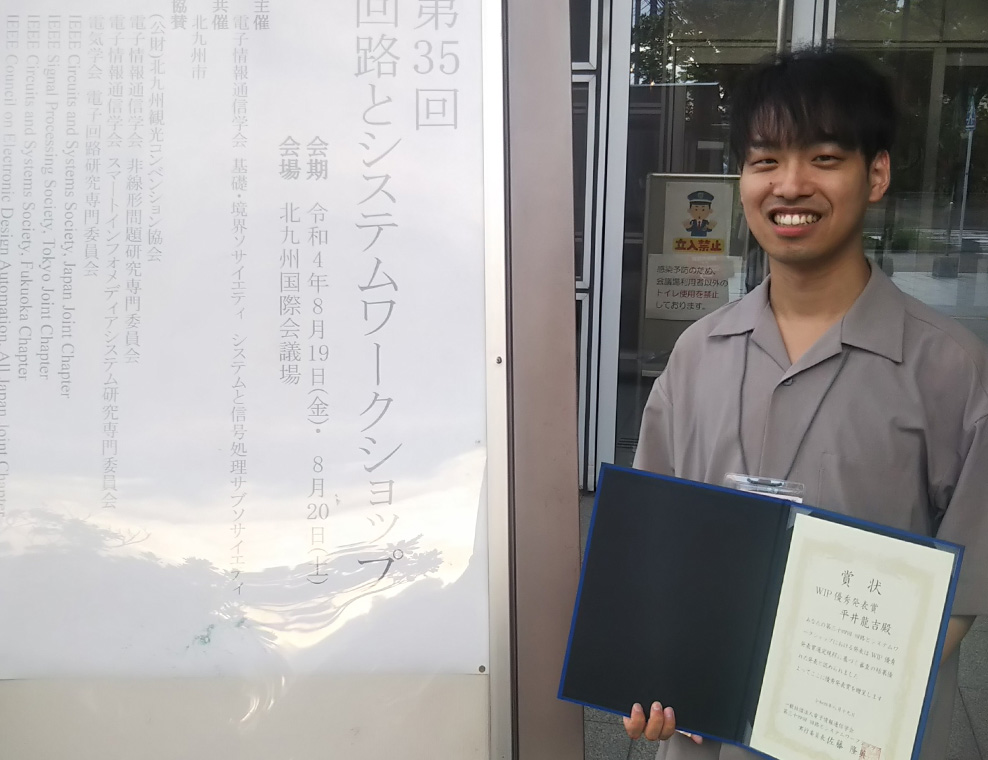 第35回
回路とシステムワークショップ
会期 令和4年8月19日(金)・8月20日(土)
会場 北九州国際会議場
主催
電子情報通信学会 基礎・境界ソサイエティ システムと信号処理サブソサイエティ
共催
北九州市
協賛
(公財)北九州観光コンベンション協会
電子情報通信学会 非線形問題研究専門委員会
電子情報通信学会 スマートインフォメディアシステム研究専門委員会
電気学会 電子回路研究専門委員会
IEEE Circuits and Systems Society, Japan Joint Chapter
IEEE Signal Processing Society, Tokyo Joint Chapter
IEEE Circuits and Systems Society, Fukuoka Chapter
IEEE Council on Electronic Design Automation, All Japan Joint Chapter
立入禁止
感染予防のため、
会議場利用者以外の
トイレ使用を禁止
しております。
賞状
WIP優秀発表賞
平井龍吉殿